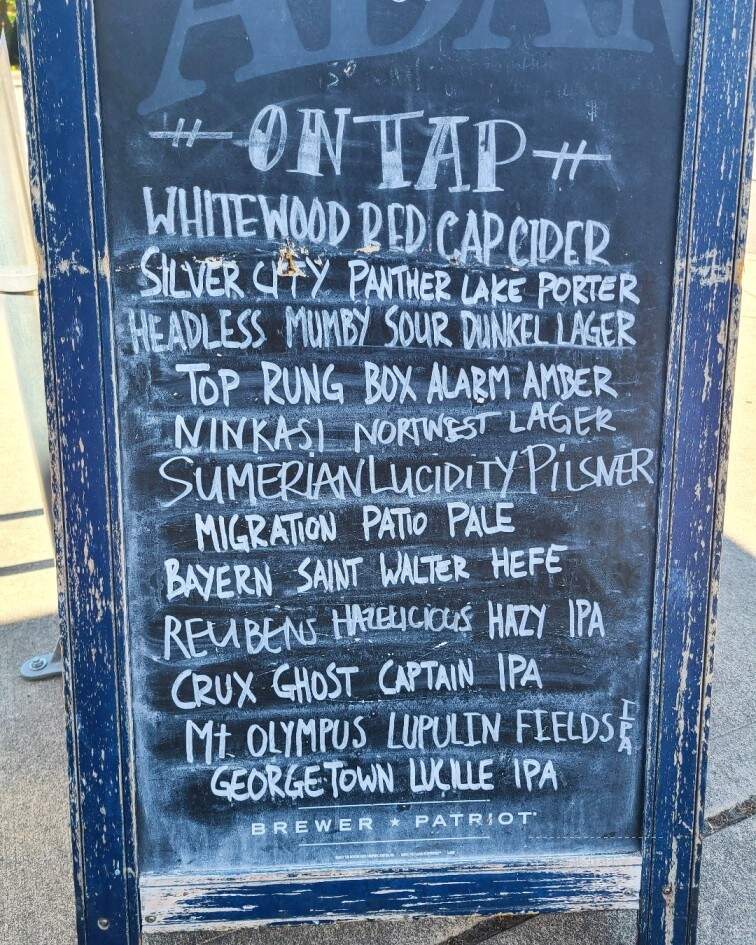 ON TAP
WHITEWOOD RED CAP CIDER
SILVER CITY PANTHER LAKE PORTER
HEADLESS MUMBY SOUR DUNKEL LAGER
TOP RUNG BOX ALARM AMBER
NINKASI NORTWEST LAGER
SUMERIAN LUCIDITY PILSNER
MIGRATION PATIO PALE
BAYERN SAINT WALTER HEFE
REUBENS HAZELICIOUS HAZY IPA
CRUX GHOST CAPTAIN IPA
Mt OLYMPUS LUPULIN FIELDS IPA
GEORGETOWN LUCILLE IPA
BREWER ★ PATRIOT